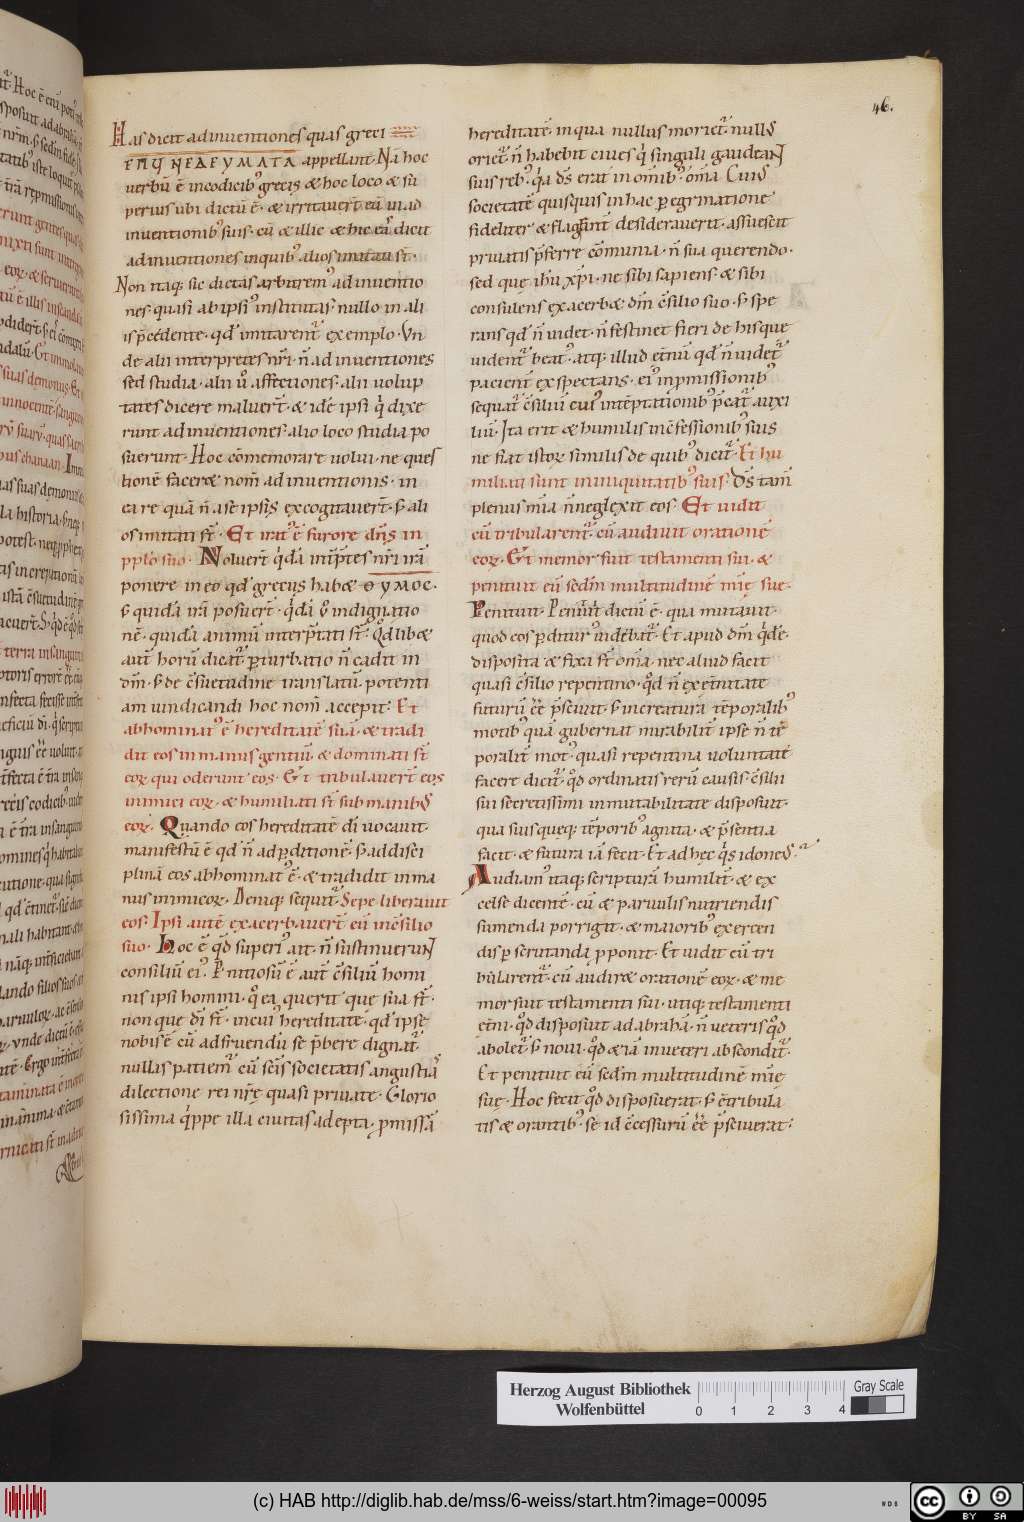 46.
Has dicit adinuentiones quas greci
appellant. Nā hoc
uerbū ē in codicib᾽ grecis & hoc loco & su
perius ubi dictū ē. & irritauert̄ eū in ad
inuentionib᾽ suis. cū & illic & hic ea᷄ dicit
adinuentiones in quib᾽ alios imitati st̄.
Non itaq; sic dictas arbitrem᾽ adinuentio
nes quasi ab ipsis institutas nullo in ali
is p̄cedente. qd᾽ imitarent᾽ exemplo. Vn
de alii interpretes nr̄i n̄ adinuentiones
sed studia. alii u᷄ affectiones. alii uolup
tates dicere maluert̄. & idē ipsi q᷄ dixe
runt adinuentiones. alio loco studia po
suerunt. Hoc cōmemorare uolui. ne ques
tionē facer& nom̄ adinuentionis. in
ea re quā n̄ a se ipsis excogitauert̄. s᷄ ali
os imitati st̄. Et irat᾽ ē furore dn̄s in
pplo suo. Noluert̄ q᷄dā int̄p̄tes nr̄i irā
ponere in eo qd᾽ grecus hab& ΘΥΜΟC.
s᷄ quidā irā posuert̄. q᷄dā u᷄ indignatio
nē. quidā animū interp̄tati st̄. Qd᾽lib&
aut̄ horū dicat᾽ p̱turbatio n̄ cadit in
dm̄. s᷄ de c̄suetudine translatū potenti
am uindicandi hoc nom̄ accepit: Et
abhominat᾽ ē hereditatē suā. & tradi
dit eos in manus gentiū. & dominati st̄
eoꝝ qui oderunt eos. Et tribulauert̄ eos
inimici eoꝝ. & humiliati st̄ sub manib᾽
eoꝝ. Quando eos hereditatē di᷄ uocauit.
manifestū ē qd᾽ n̄ ad p̱ditionē. s᷄ ad disci
plinā eos abhominat᾽ ē. & tradidit in ma
nus inimicoꝝ. Deniq; sequit᾽. Sepe liberauit
eos. Ipsi autē exacerbauert̄ eū in c̄silio
suo. Hoc ē qd᾽ superi᾽ ait. n̄ sustinuerunt
consiliū ei᾽. P̱nitiosū ē aut̄ c̄siliū homi
nis ipsi homini. q᷄ ea querit que sua st̄.
non que di᷄ st̄. in cui᾽ hereditate. qd᾽ ipse
nobis ē cū ad fruendū se p̄bere dignat᾽.
nullas patiem᾽ cū sc̄is societatis angustia᷄
dilectione rei nr̄ę quasi priuate. Glorio
sissima q᷄ppe illa ciuitas adepta p̱missā
hereditatē. in qua nullus moriet᾽ null᾽
oriet᾽. n̄ habebit ciues q᷄ singuli gaudeant
suis reb᾽. q᷄a ds̄ erat in om̄ib᾽ om̄a. Cui᾽
societatē quisquis in hac p̱egrinatione
fideliter & flagrant̄ desiderauerit. assuescit
priuatis p̄ferre cōmunia. n̄ sua querendo.
sed que ihu᷄ xp̄i. ne sibi sapiens & sibi
consulens exacerb& dm̄ c̄silio suo. s᷄ spe
rans qd᾽ n̄ uidet. n̄ festinet fieri de his que
uident᾽ beat᾽. atq; illud et̄nū qd᾽ n̄ uidet᾽
pacient̄ expectans. ei᾽ in p̱missionib᾽
sequat᾽ c̄siliū cui᾽ in tēptationib᾽ p̄cat᾽ auxi
liū. Ita erit & humilis in c̄fessionib᾽ suis
ne fiat istoꝝ similis de quib᾽ dicit᾽. Et hu
miliati sunt in iniquitatib᾽ suis. Ds̄ tam̄
plenus mīa n̄ neglexit eos. Et uidit
cū tribularent᾽. cū audiuit orationē
eoꝝ. Et memor fuit testamenti sui. &
penituit eū secdm̄ multitudinē mīę sue.
Penituit. Penitu᷄it dictū ē. quia mutauit.
quod eos p̱diturus uidebat᾽. Et apud dm̄ q᷄dē.
disposita & fixa st̄ om̄a. nec aliud facit
quasi c̄silio repentino. qd᾽ n̄ ex et̄nitate
futurū ēē p̄sciuit. s᷄ in creatura tēporalib᾽
motib᾽ quā gubernat mirabilit̄ ipse n̄ tē
poralit̄ mot᾽. quasi repentina uoluntate
facere dicit᾽. qd᾽ ordinatis rerū causis c̄silii
sui secretissimi inmutabilitate disposuit.
qua suis queq; tēporib᾽ agnita. & p̄sentia
facit. & futura iā fecit. Et ad hec q᷄s idoneus.
Audiam᾽ itaq; scripturā humilit̄. & ex
celse dicentē. cū & paruulis nutriendis
sumenda porrigit. & maiorib᾽ exercen
dis p̱scrutanda p̱ponit. Et uidit cū tri
bularent᾽. cū audir& orationē eoꝝ. & me
mor fuit testamenti sui. utiq; testamenti
et̄ni. qd᾽ disposuit ad abrahā. n̄ ueteris qd᾽
abolet᾽. s᷄ noui. qd᾽ & iā in ueteri abscondit᾽.
Et penituit eū secdm̄ multitudinē mīę
suę. Hoc fecit qd᾽ disposuerat. s᷄ c̄tribula
tis & orantib᾽. se id c̄cessurū ēē p̄sciuerat:
Herzog August Bibliothek
Wolfenbüttel
0 1 2 3 4
Gray Scale
(c) HAB http://diglib.hab.de/mss/6-weiss/start.htm?image=00095
cc BY SA